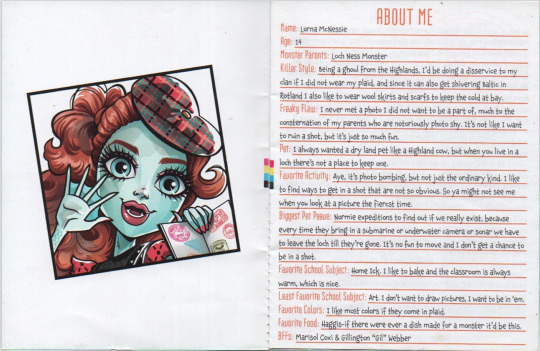 ABOUT ME
Name: Lorna McNessie
Age: 14
Monster Parents: Loch Ness Monster
Killer Style: Being a ghoul from the Highlands, I'd be doing a disservice to my
clan if I did not wear my plaid, and since it can also get shivering Baltic in
Rotland I also like to wear wool skirts and scarfs to keep the cold at bay.
Freaky Flaw: I never met a photo I did not want to be a part of, much to the
consternation of my parents who are notoriously photo shy. It's not like I want
to ruin a shot, but it's just so much fun.
Pet: I always wanted a dry land pet like a Highland cow, but when you live in a
loch there's not a place to keep one.
Favorite Activity: Aye, it's photo bombing, but not just the ordinary kind. I like
to find ways to get in a shot that are not so obvious. So ya might not see me
when you look at a picture the fiercst time.
Biggest Pet Peeve: Normie expeditions to find out if we really exist, because
every time they bring in a submarine or underwater camera or sonar we have
to leave the loch till they're gone. It's no fun to move and I don't get a chance to
be in a shot.
Favorite School Subject: Home Ick. I like to bake and the classroom is always
warm, which is nice.
Least Favorite School Subject: Art. I don't want to draw pictures, I want to be in 'em.
Favorite Colors: I like most colors if they come in plaid.
Favorite Food: Haggis-if there were ever a dish made for a monster it'd be this.
BFFs: Marisol Coxi & Gillington "Gil" Webber